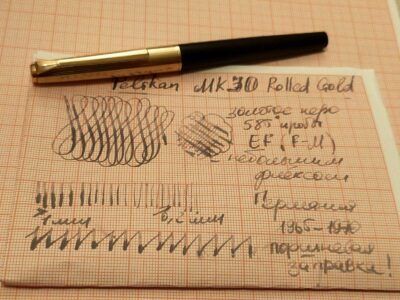 Pelikan MK30 Rolled Gold
золотое перо
585 пробы
EF (F-M)
с небольшим
флексом
1 мм
0,2 мм
Германия
1965-1970
поршневая
заправка!